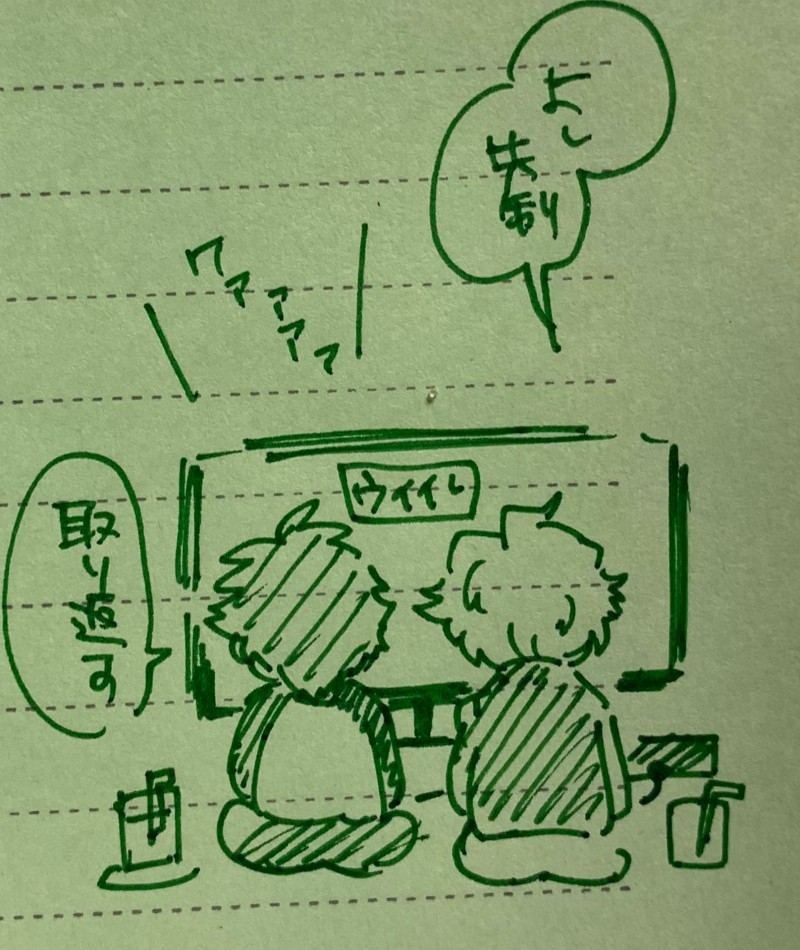 よし
先制
ワァァァァ
ウイイレ
取り返す